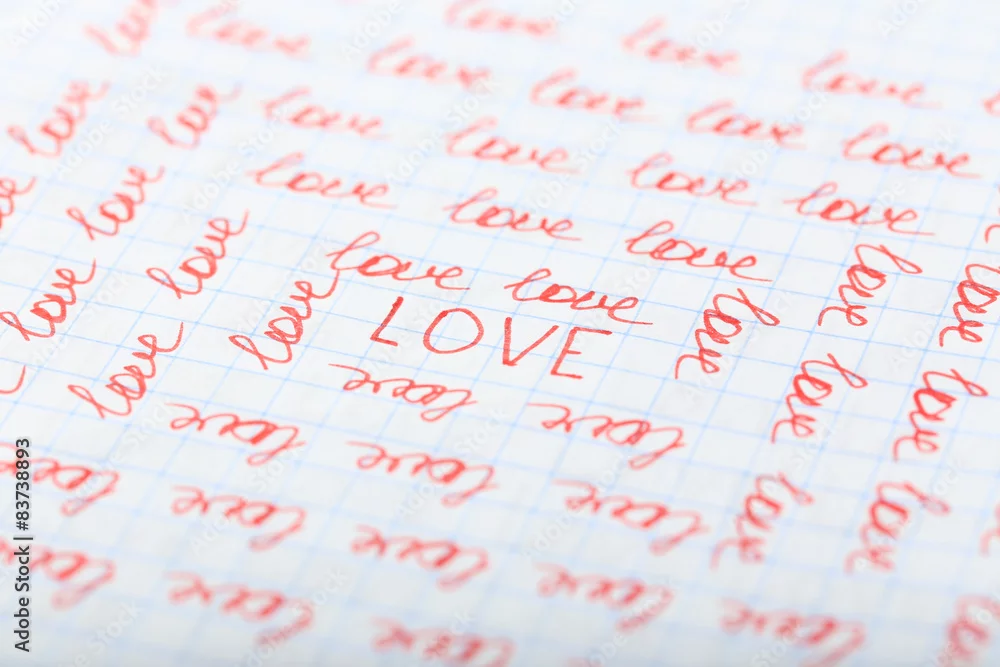 love
love love love
love love love love
love love love love love
love love love love
love love love love love
love love love love love
love love love love love
LOVE
love love love love
love love love love
love love love love
love love love love
love love love love
Adobe Stock | #83738893